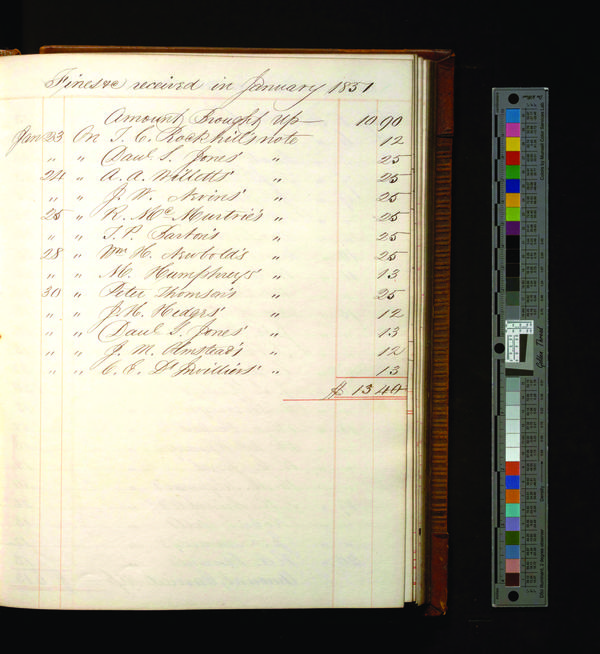 Fines &c received in January 1851
Amount Brought Up— 10 90
Jan 23 On T. C. Rockhill's note 12
" " Paul T. Jones' " 25
24 " A. A. Willetts' " 25
" " J. W. Nevins' " 25
25 " R. Mc Murtrie's " 25
" " T. P. Barton's " 25
28 " Wm H. Newbold's " 25
" " M. Humphreys' " 13
30 " Peter Thomson's " 25
" " J. H. Hedges' " 12
" " Paul T. Jones' " 13
" " J. M. Olmstead's " 12
" " C. E. " 13
$ 13 40